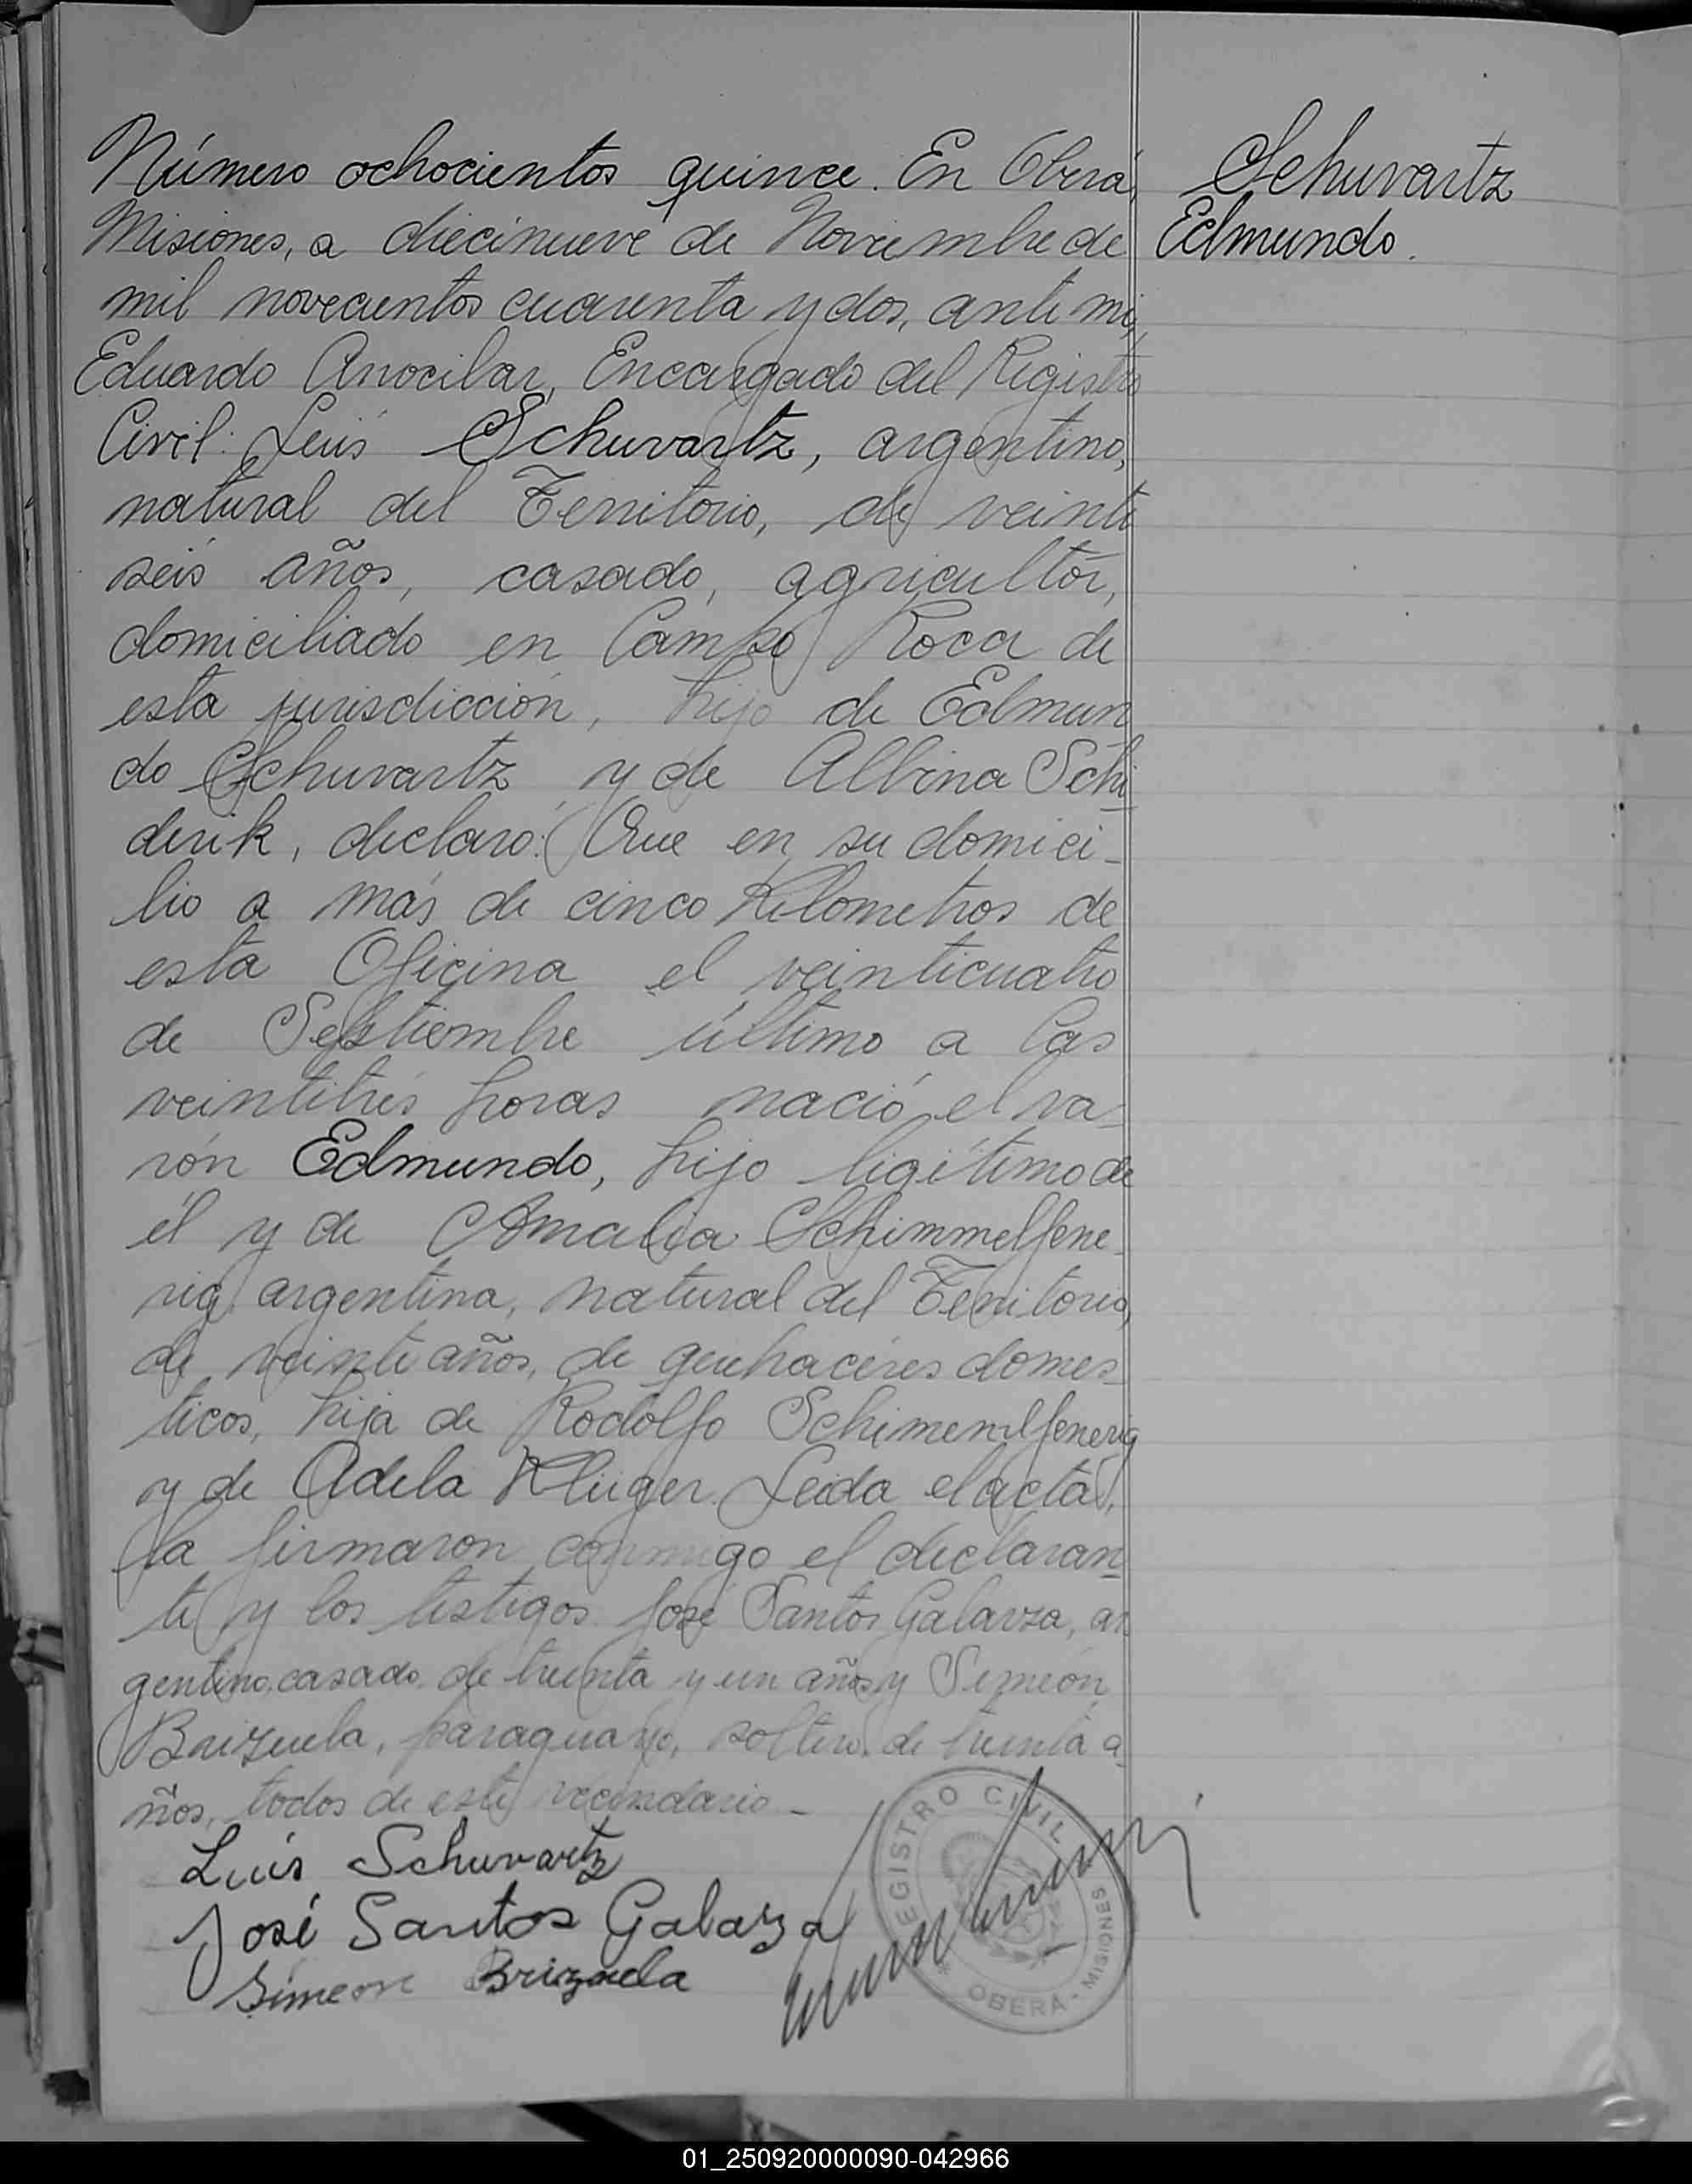 Número ochocientos quince. En Oberá,
Misiones, a diecinueve de Noviembre de
mil novecientos cuarenta y dos, ante mi,
Eduardo Anocibar, Encargado del Registro
Civil: Luis Schuvartz, argentino,
natural del Territorio, de veinte
seis años, casado, agricultor,
domiciliado en Campo Roca de
esta jurisdicción, hijo de Edmun
do Schuvartz y de Albina Schi
derik, declaró: Que en su domici-
lio a más de cinco Kilometros de
esta Oficina el veinticuatro
de Septiembre último a las
veintitrés horas nació el va-
rón Edmundo, hijo legítimo de
él y de Amalia Schimmelfene-
rig, argentina, natural del Territorio,
de veinte años, de quehaceres domes-
ticos, hija de Rodolfo Schimemelfenerig
y de Adela Klüger. Leida el acta,
la firmaron conmigo el declaran
te y los testigos José Santos Galarza, ar
gentino, casado, de treinta y un años y Simeón
Brizuela, paraguayo, soltero, de treinta a
ños, todos de este vecindario-
Luis Schuvartz
José Santos Galarza
Simeon Brizuela
REGISTRO CIVIL
OBERÁ - MISIONES
Schuvartz
Edmundo.
01_250920000090-042966